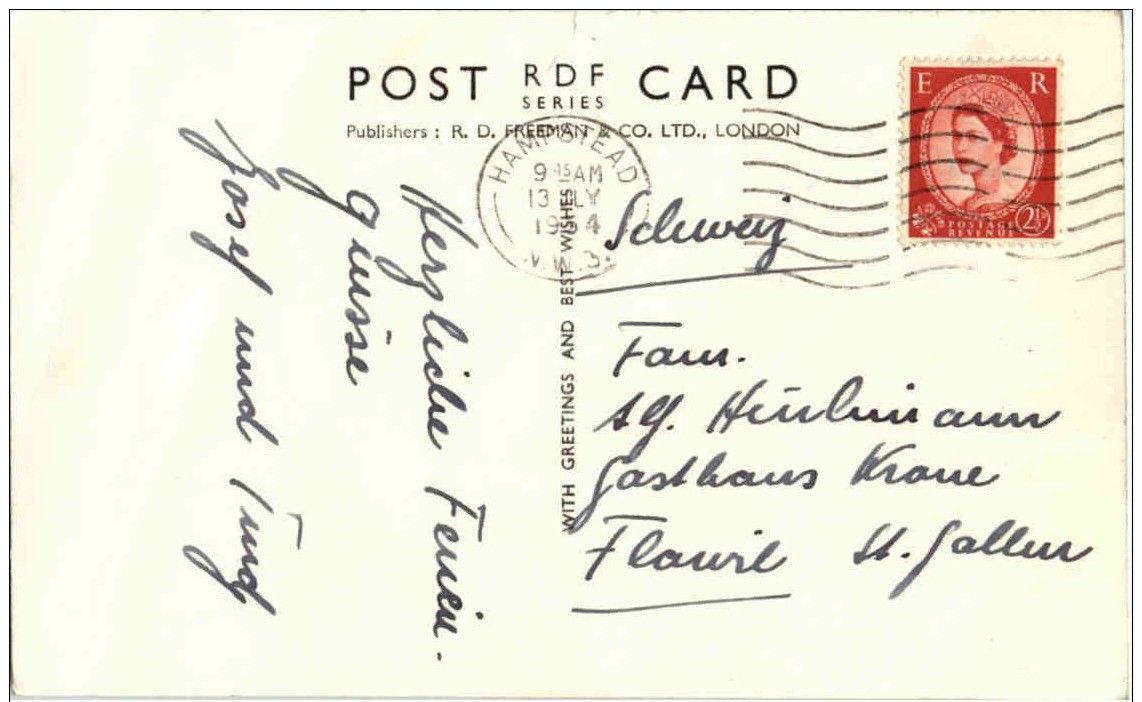 POST RDF CARD
SERIES
Publishers : R. D. FREEMAN & CO. LTD., LONDON
HAMPSTEAD
9 45 AM
13 JLY
1954
N.W.3.
E R
POSTAGE 2½D
REVENUE
WITH GREETINGS AND BEST WISHES
Herzliche Ferien.
grüsse
Josef und
Schweiz
Fam.
Alf.
Gasthaus Krone
Flawil St. Gallen